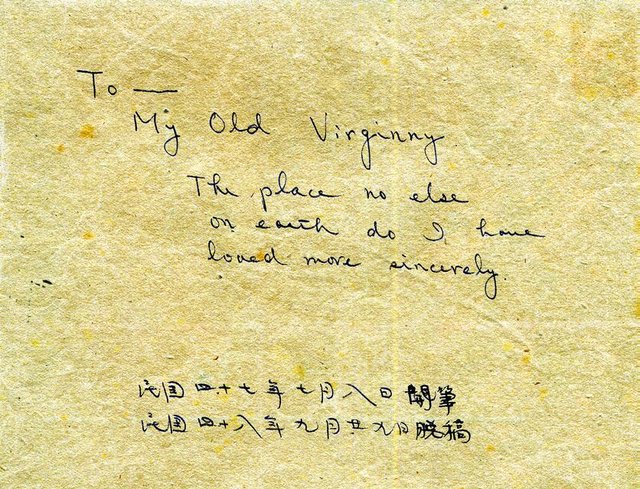 To —
My Old Virginny
The place no else
on earth do I have
loved more sincerely.
民国四十七年七月八日開筆
民国四十八年九月廿九日脱稿